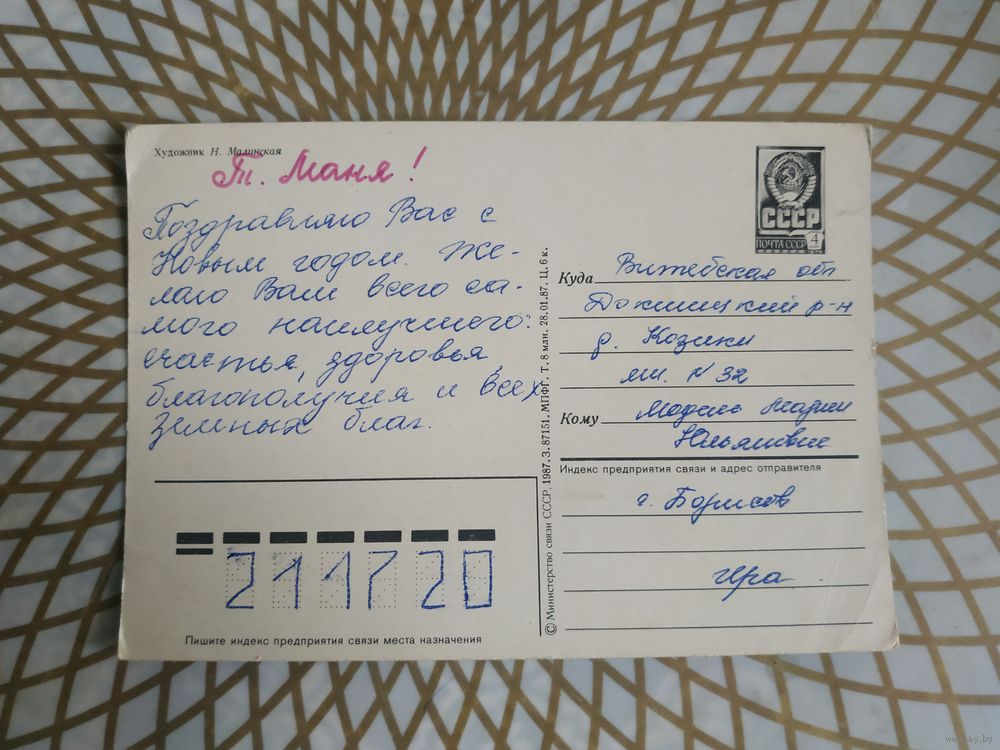 Художник Н. Малинская
Т. Маня!
Поздравляю Вас с
Новым годом. Же-
лаю Вам всего са-
мого наилучшего:
счастья, здоровья
благополучия и всех
земных благ.
СССР
ПОЧТА СССР 4
Куда Витебская обл
Докшицкий р-н
д. Козики
№ 32
Кому Марии
Индекс предприятия связи и адрес отправителя
г. Борисов
Ира
© Министерство связи СССР, 1987. З. 87151. МПФГ. Т. 8 млн. 28.01.87. Ц. 6 к.
211720
Пишите индекс предприятия связи места назначения
www.ay.by